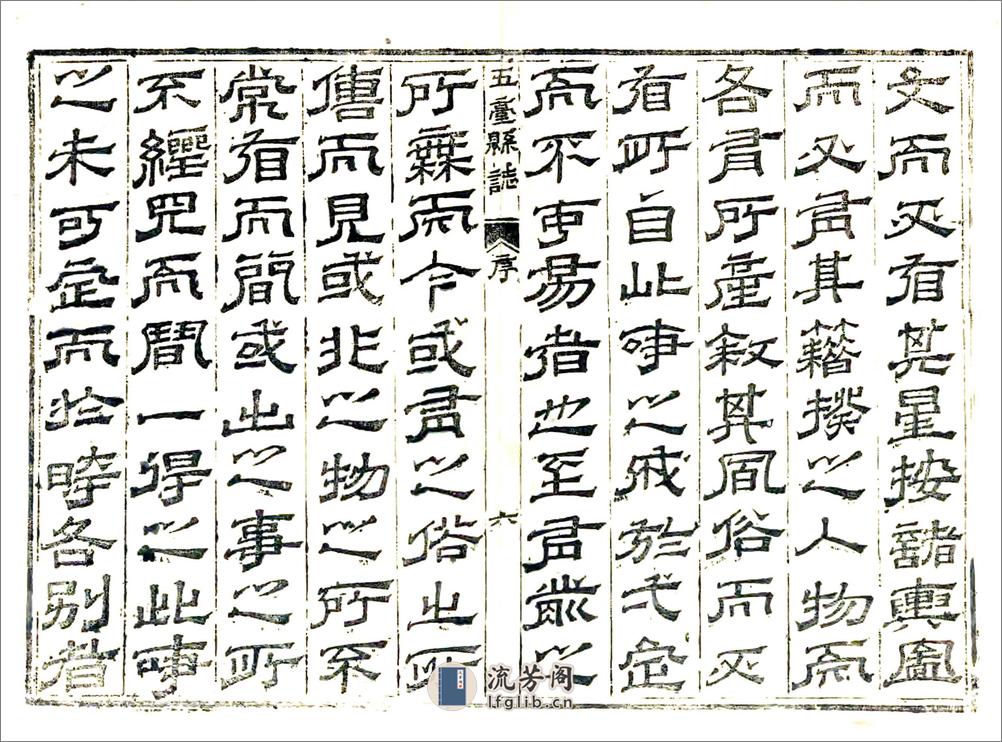 文而必有其星按諸輿圖
而必有其籍揆之人物而
各有所產敘其風俗而必
有所自此事之成於弌定
而不可易者也至有前之
五臺縣誌 序 六
所無而今或有之俗之所
傳而見或非之物之所不
常有而簡或出之事之所
不經而間一得之此事
之未可定而於時各別者
流芳阁
lfglib.cn